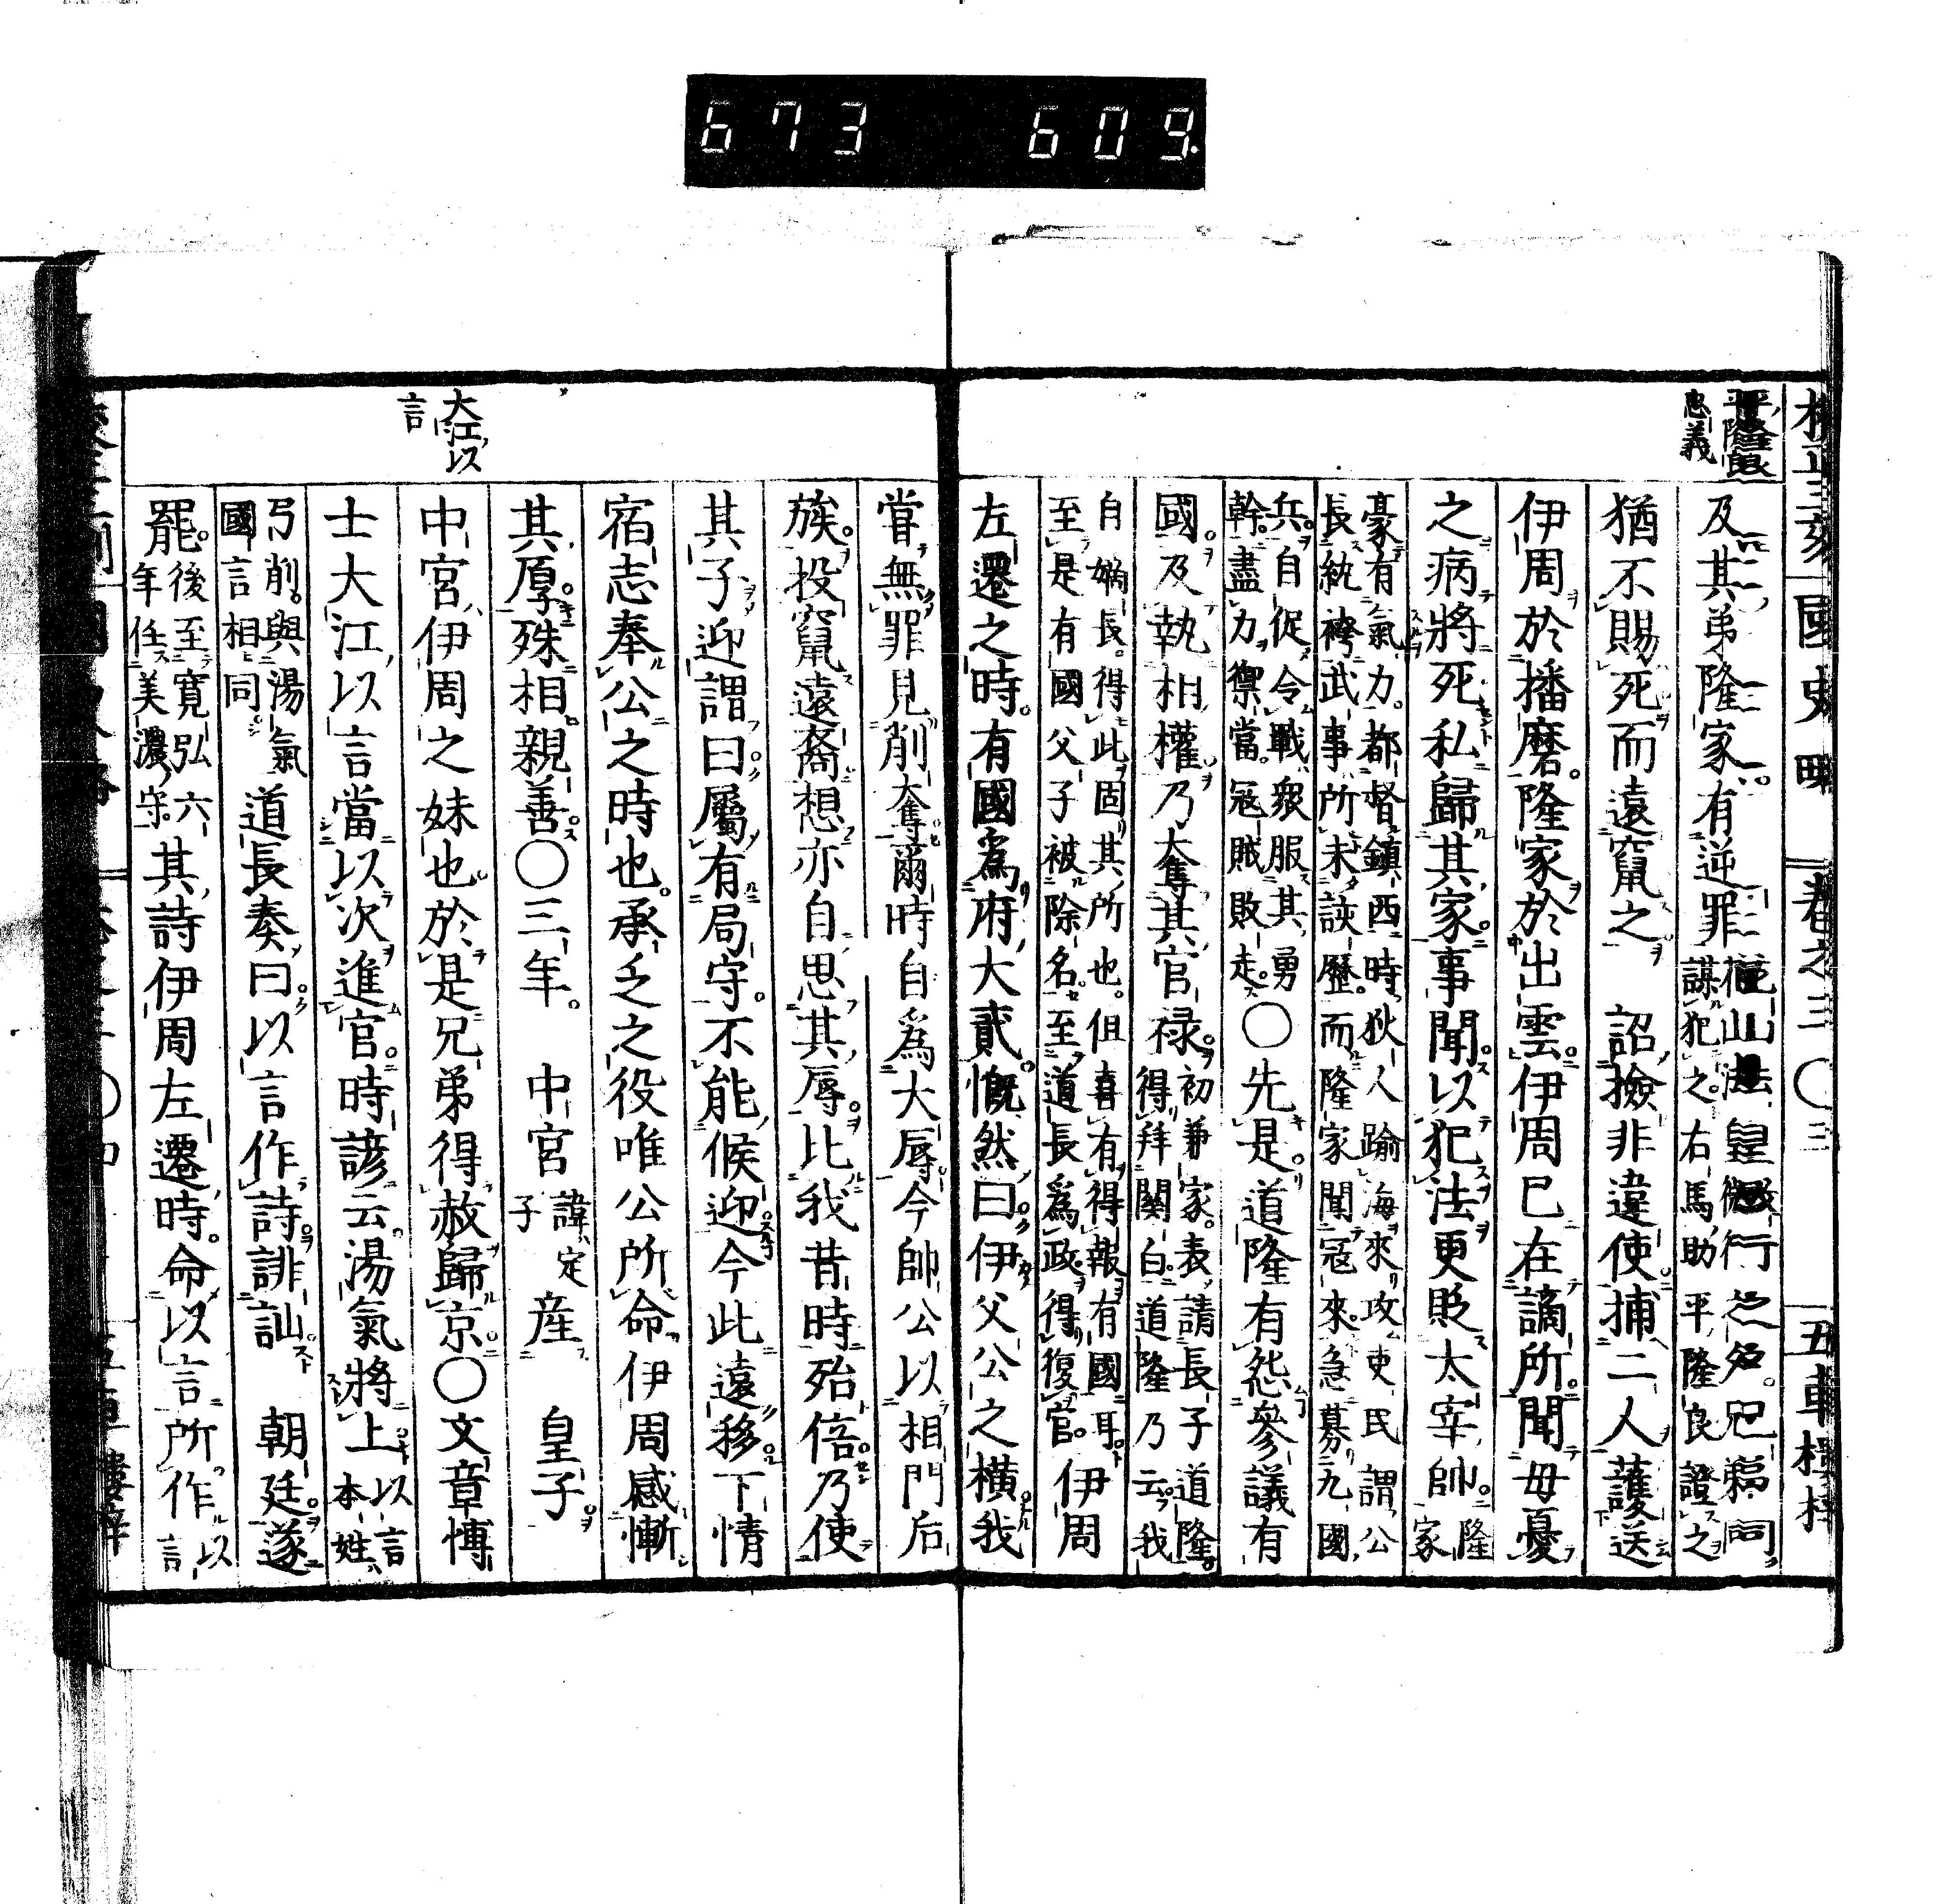 673 609
國史略 卷之三 〇三 五車樓梓
平隆良
忠義
及其弟隆家有逆罪花山法皇微行之夕兄弟同
謀犯之右馬助平隆良證之
猶不賜死而遠竄之 詔撿非違使捕二人護送
伊周於播磨隆家於出雲伊周已在謫所聞母憂
之病將死私歸其家事聞以犯法更貶太宰帥隆
家
豪有氣力都督鎮西時狄人踰海來攻吏民謂公
長紈袴武事所未諳歷而隆家聞冦來急募九國
兵自促令戰衆服其勇
幹盡力禦當冦賊敗走〇先是道隆有怨參議有
國及執相權乃奪其官祿初兼家表請長子道隆
得拜關白道隆乃云我
自嫡長得此固其所也但喜有得報有國耳
至是有國父子被除名至道長爲政得復官伊周
左遷之時有國爲府大貳慨然曰伊父公之橫我
甞無罪見削奪爾時自爲大辱今帥公以相門后
族投竄遠裔想亦自思其辱比我昔時殆倍乃使
其子迎謂曰屬有局守不能候迎今此遠移下情
宿志奉公之時也承乏之役唯公所命伊周感慚
其厚殊相親善〇三年 中宮諱定
子產 皇子
中宮伊周之妹也於是兄弟得赦歸京〇文章博
大江以
言
士大江以言當以次進官時諺云湯氣將上以言
本姓
弓削與湯氣
國言相同道長奏曰以言作詩誹訕 朝廷遂
罷後至寬弘六
年任美濃守其詩伊周左遷時命以言所作以
言